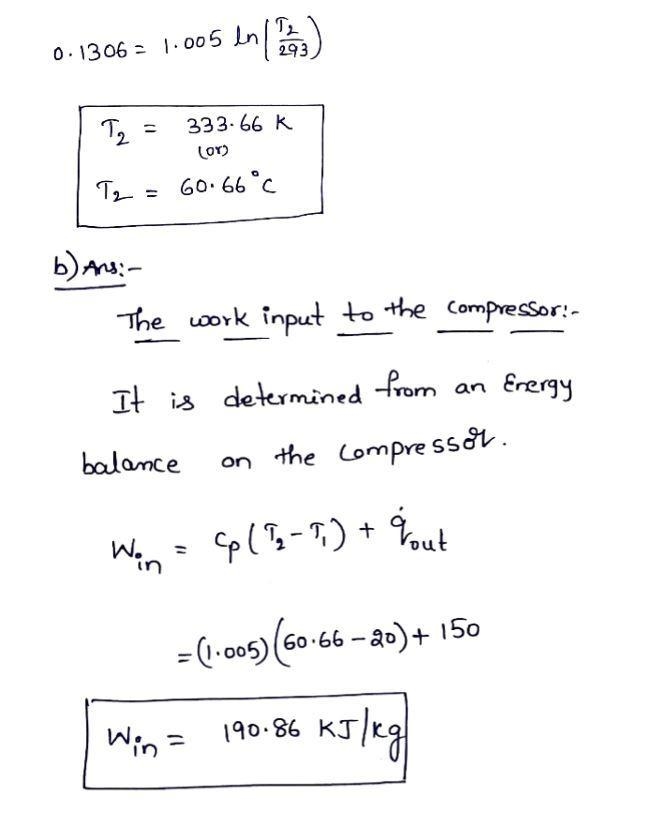 0.1306 = 1.005 ln(T₂/293)
T₂ = 333.66 K
(or)
T₂ = 60.66°C
b) Ans:-
The work input to the compressor:-
It is determined from an Energy
balance on the compressor.
Win = Cp(T₂-T₁) + q̇out
=(1.005)(60.66-20)+150
Win = 190.86 KJ/kg